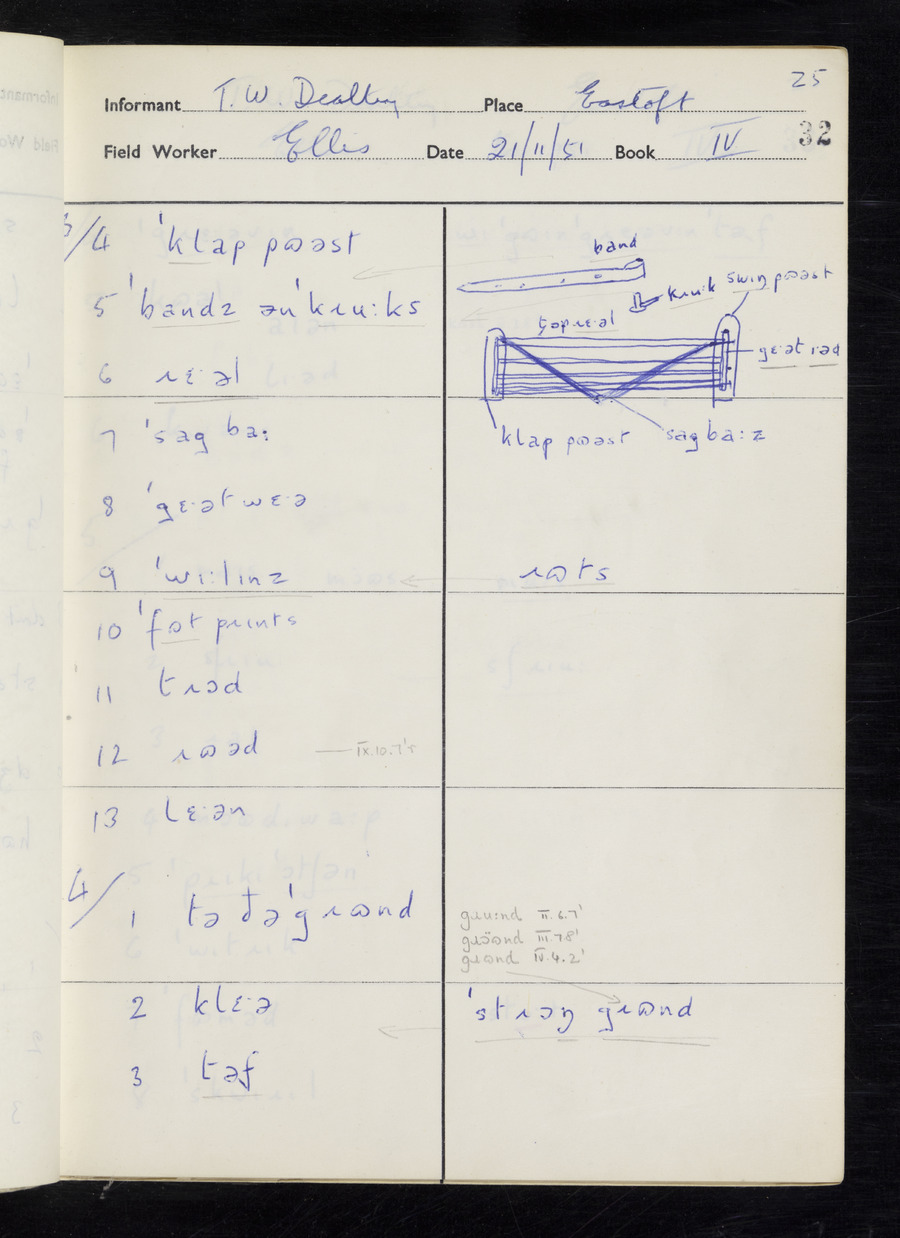 25
Informant T. W. Dealtry Place Eastoft
32
Field Worker Ellis Date 21/11/51 Book IV
3/4 ˈklap pʊəst
5 ˈbandz ənˈkɹuːks
6 ɹɛˑəl
7 ˈsag baː
8 ˈgɛˑətwɛə
9 ˈwiːlinz
10 ˈfɵt pɹints
11 tɹɔd
12 ɹʊəd — IX.10.7's
13 lɛˑən
4/
1 tə ðəˈgɹʊnd
2 klɛˑə
3 tɵf
band
kɹuˑk
swiŋ pʊəst
tɔpɹɛˑəl
gɛˑət ɹəd
klap pʊəst
sag baːz
ɹʊts
gɹuːnd II.6.7'
gɹöənd III.7 8'
gɹʊnd IV.4.2'
ˈstɹɔŋ gɹʊnd